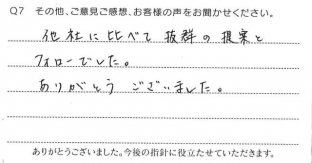 Q7 その他、ご意見ご感想、お客様の声をお聞かせください。
他社に比べて抜群の提案と
フォローでした。
ありがとうございました。
ありがとうございました。今後の指針に役立たせていただきます。